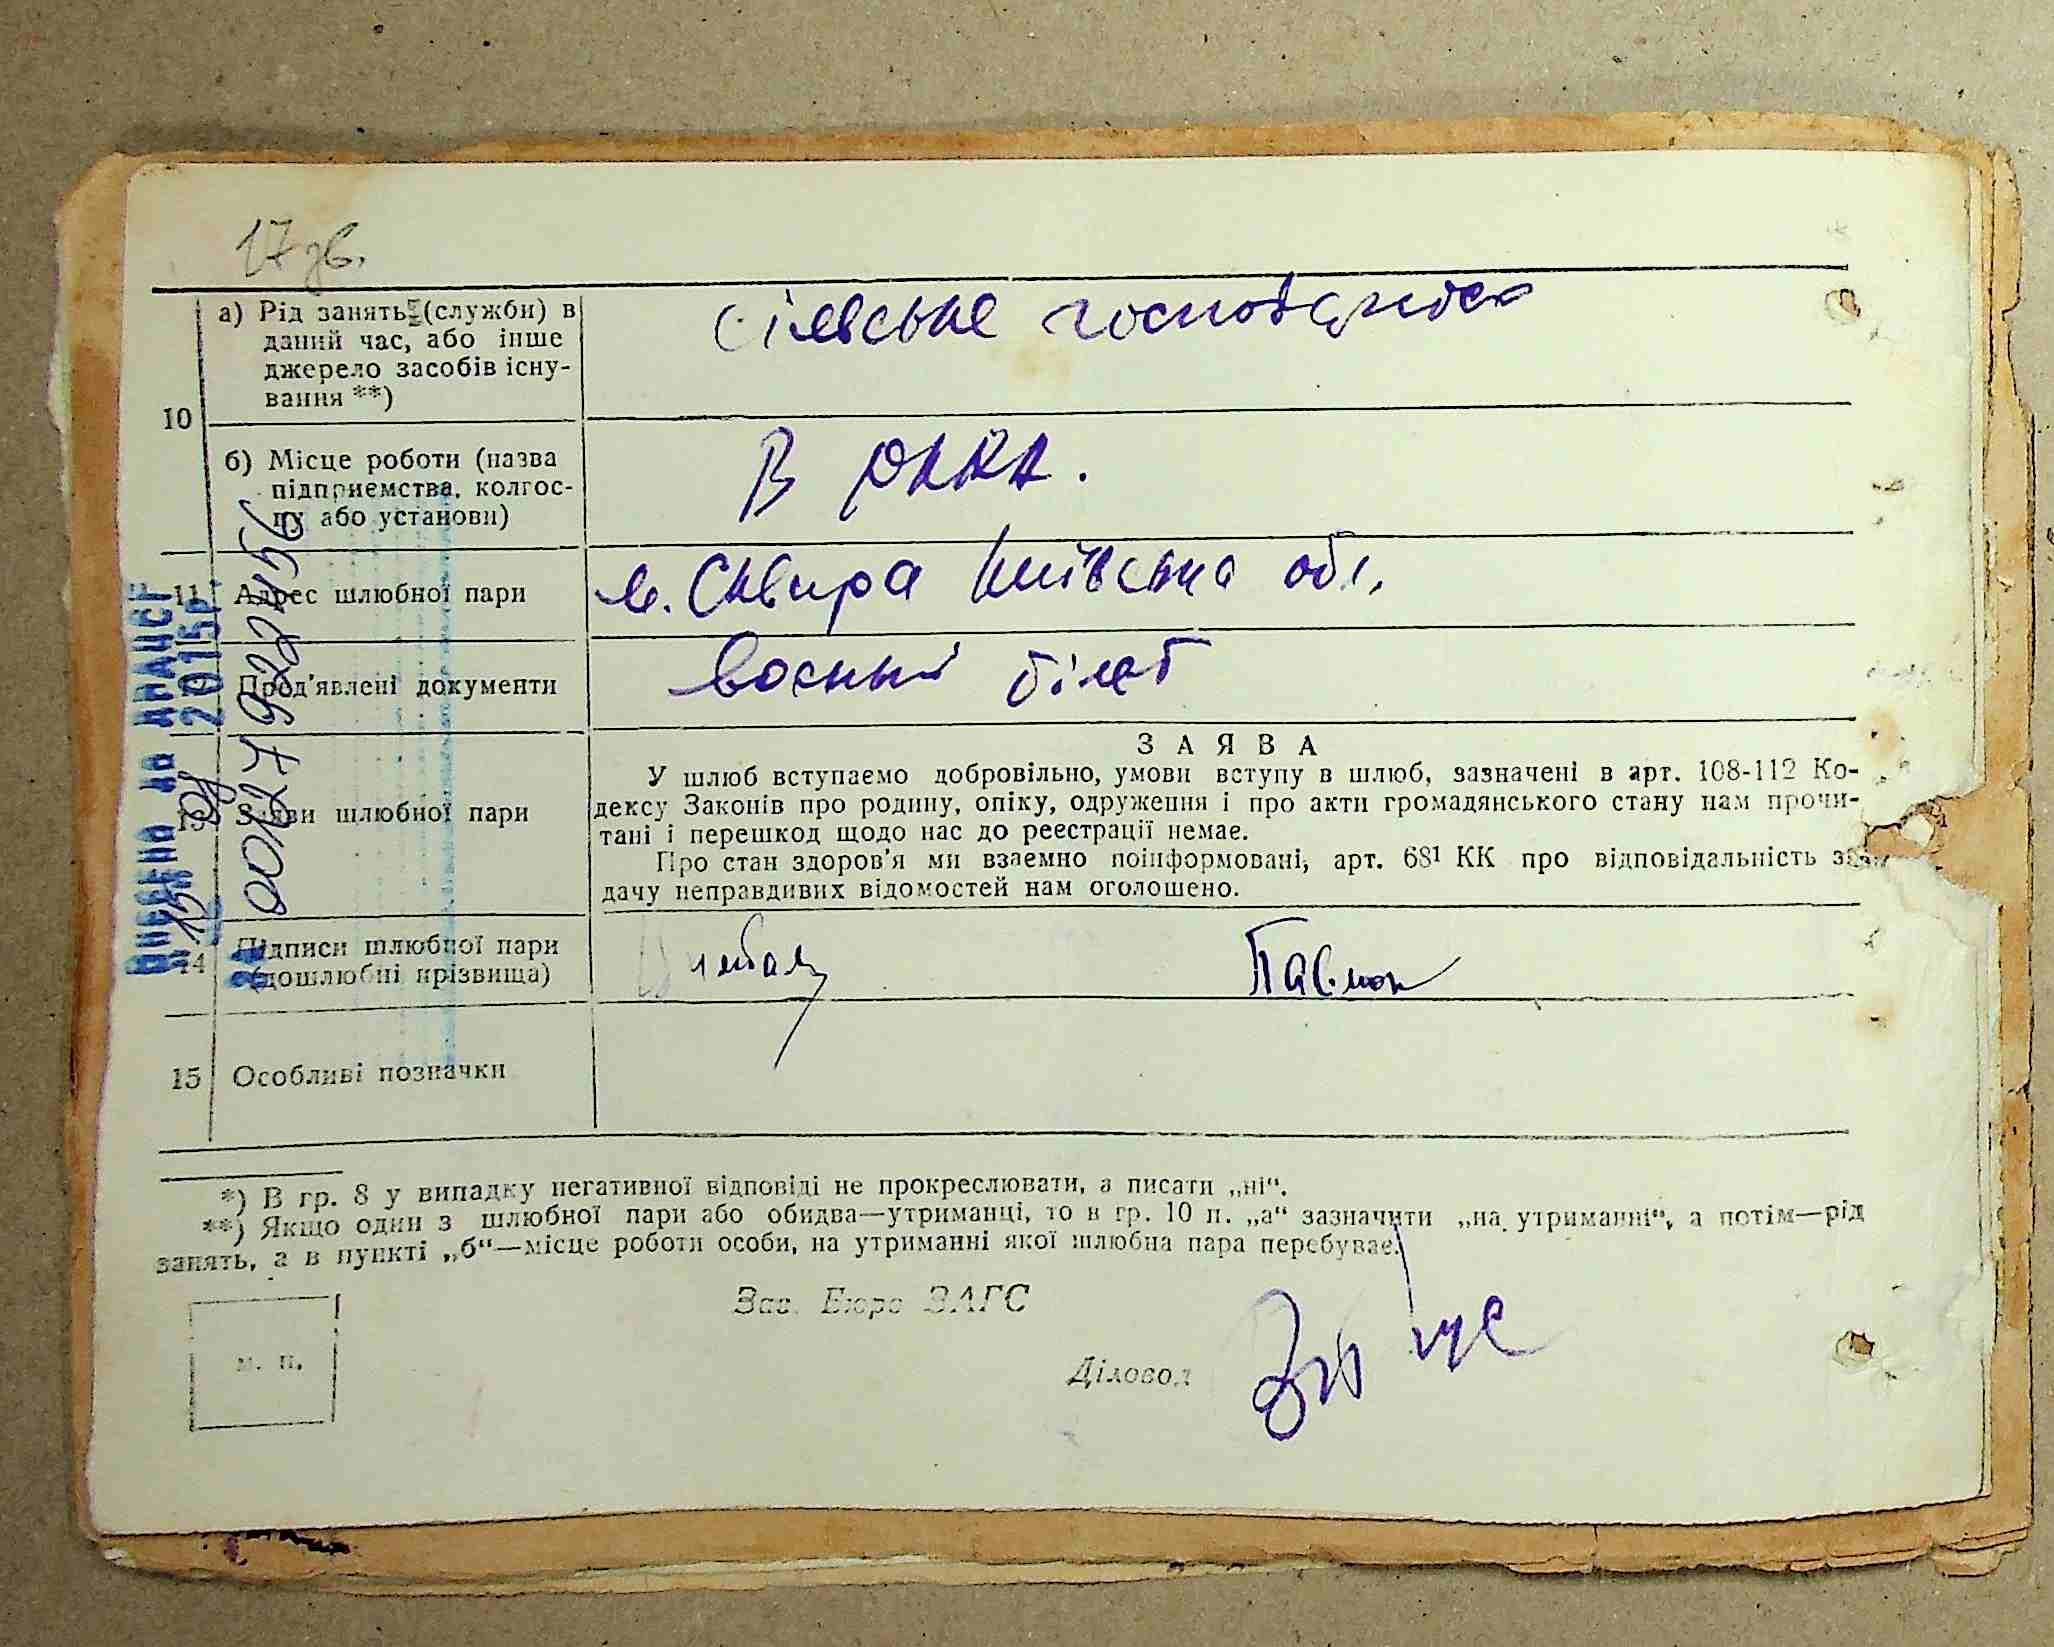 17 зв.
а) Рід занять (служби) в
даний час, або інше
джерело засобів існу-
вання **)
сілвське господарност
10
б) Місце роботи (назва
підприємства, колгос-
пу або установи)
В РККА.
11 Адрес шлюбної пари
м. Сквира Київська обл.
12 Пред'явлені документи
воєнний білет
13 Заяви шлюбної пари
ЗАЯВА
У шлюб вступаємо добровільно, умови вступу в шлюб, зазначені в арт. 108-112 Ко-
дексу Законів про родину, опіку, одруження і про акти громадянського стану нам прочи-
тані і перешкод щодо нас до реестрації немае.
Про стан здоров'я ми взаемно поінформовані, арт. 68¹ КК про відповідальність за
дачу неправдивих відомостей нам оголошено.
14 Підписи шлюбної пари
(дошлюбні прізвища)
15 Особливі позначки
*) В гр. 8 у випадку негативної відповіді не прокреслювати, а писати „ні“.
**) Якщо один з шлюбної пари або обидва—утриманці, то в гр. 10 п. „а“ зазначити „на утриманні“, а потім—рід
занять, а в пункті „б“—місце роботи особи, на утриманні якої шлюбна пара перебувае.
Зав. Бюро ЗАГС
м. п.
Діловод
Внесено на ДРАЦСГ
"15" 08 2015р.
за 00127922456